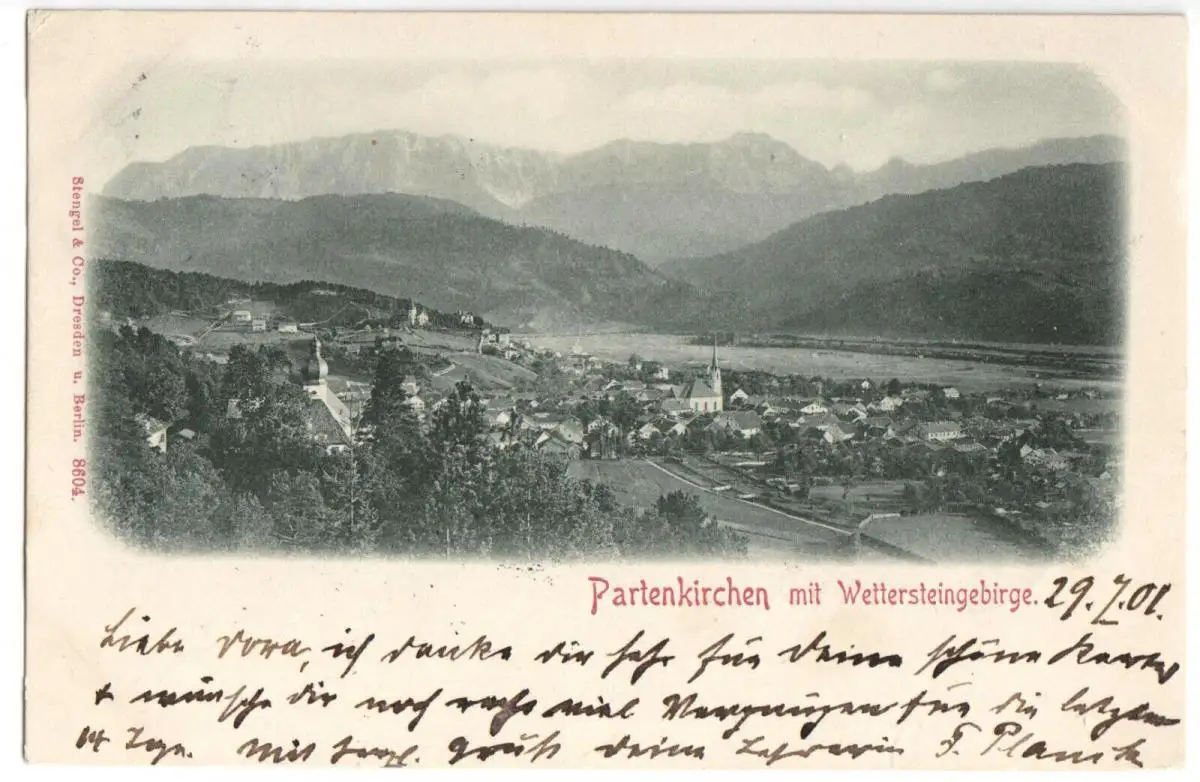 Stengel & Co., Dresden u. Berlin. 8604.
Partenkirchen mit Wettersteingebirge. 29.7.01.
Liebe Dora, ich danke dir sehr für deine schöne Karte
+ wünsche dir noch recht viel Vergnügen für die letzten
14 Tge. Mit herzl. Gruß deine Lehrerin F. Planck